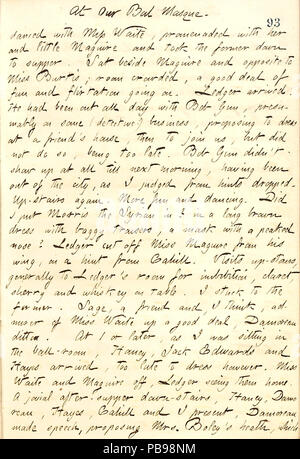 At Our Bal Masque.
93
danced with Miss Waite, promenaded with her
and little Maguire and took the former down
to supper. Sat beside Maguire and opposite to
Miss Curtis; room crowded, a good deal of
fun and flirtation going on. Ledger arrived.
He had been out all day with Bob Gun, presu-
mably on some (detective) business, proposing to dress
at a friend's house, then to join us, but did
not do so, being too late. Bob Gun didn't
show up at all till next morning, having been
out of the city, as I judged from hints dropped.
Up-stairs again. More fun and dancing. Did
I put Morris the Syrian in? in a long brown
dress with baggy trousers, a mask with a peaked
nose? Ledger cut off Miss Maguire from his
wing, on a hint from Cahill. Visits up-stairs,
generally to Ledger's room for imbibition, claret
sherry and whiskey on table. I stuck to the
former. Sage, a friend and I think, ad-
mirer of Miss Waite up a good deal, Damoreau
ditto. At 1 or later, as I was sitting in
the ball-room, Haney, Jack Edwards and
Hayes arrived, too late to dress however. Miss
Waite and Maguire off, Ledger seeing them home.
A jovial after-supper down-stairs, Haney, Damo
reau, Hayes Cahill and I present, Damoreau
made speech, proposing Mrs. Boley's health, which
alamy
PB98NM